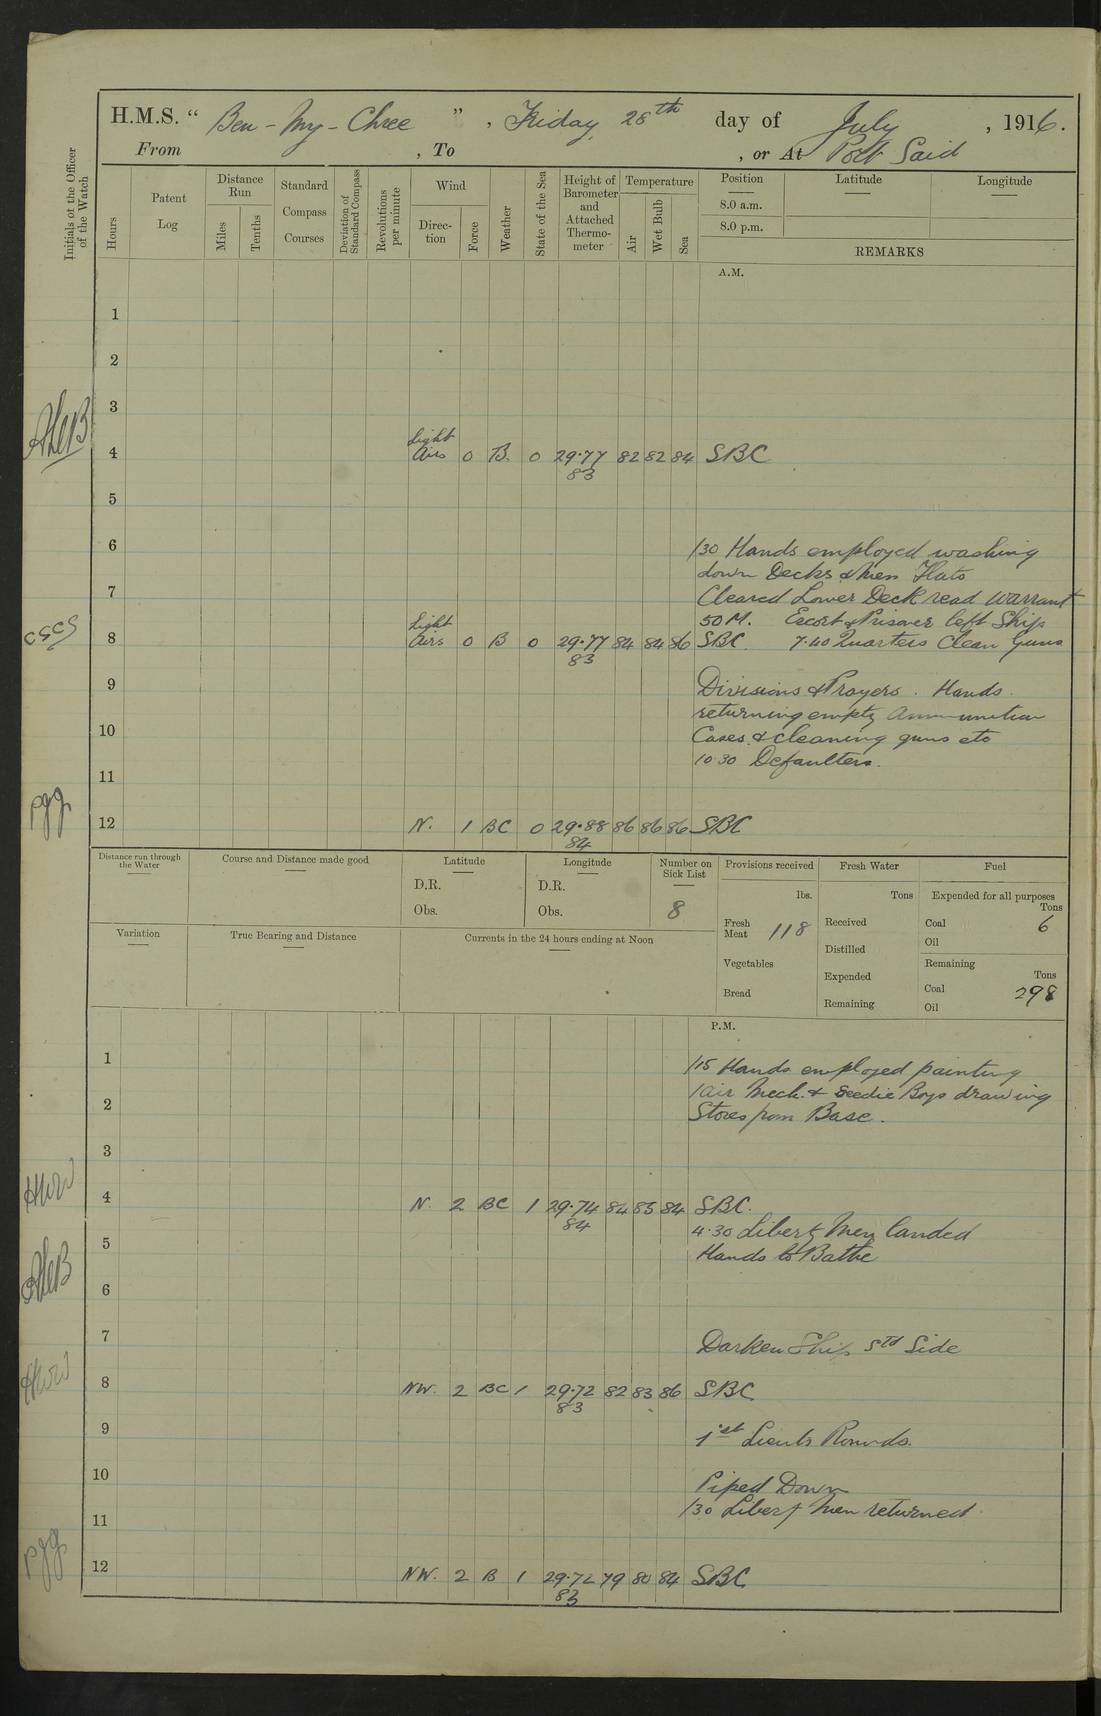 H.M.S. “ Ben-My-Chree ” , Friday 28th day of July , 1916.
From , To , or At Port Said
Initials of the Officer of the Watch
Hours
Patent Log
Distance Run
Miles
Tenths
Standard Compass Courses
Deviation of Standard Compass
Revolutions per minute
Wind
Direction
Force
Weather
State of the Sea
Height of Barometer and Attached Thermometer
Temperature
Air
Wet Bulb
Sea
Position
8.0 a.m.
8.0 p.m.
Latitude
Longitude
REMARKS
A.M.
1
2
3
4 Light Airs 0 B. 0 29.77 83 82 82 84 SBC
5
6 /30 Hands employed washing
down Decks & Mess Flats
7 Cleared Lower Deck read Warrant
50 M. Escort & Prisoner left Ship
CSCS
8 Light Airs 0 B 0 29.77 83 84 84 86 SBC 7.40 Quarters Clean Guns
9 Divisions & Prayers. Hands
returning empty ammunition
10 Cases & cleaning guns etc
10.30 Defaulters.
11
12 N. 1 BC 0 29.88 84 86 86 86 SBC
Distance run through the Water
Course and Distance made good
Latitude
D.R.
Obs.
Longitude
D.R.
Obs.
Number on Sick List
8
Provisions received
lbs.
Fresh Meat 118
Vegetables
Bread
Fresh Water
Tons
Received
Distilled
Expended
Remaining
Fuel
Expended for all purposes
Tons
Coal 6
Oil
Remaining
Tons
Coal 298
Oil
Variation
True Bearing and Distance
Currents in the 24 hours ending at Noon
P.M.
1 /15 Hands employed painting
1 air Mech. & Seedie Boys drawing
2 Stores from Base.
3
HWW
4 N. 2 BC 1 29.74 84 84 85 84 SBC.
4.30 Liberty Men landed
5 Hands to Bathe
6
7 Darken Ship Std Side
HWW
8 NW. 2 BC 1 29.72 83 82 83 86 SBC
9 1st Lieuts Rounds.
10 Piped Down
/30 Liberty Men returned
11
12 NW. 2 B 1 29.72 83 79 80 84 SBC